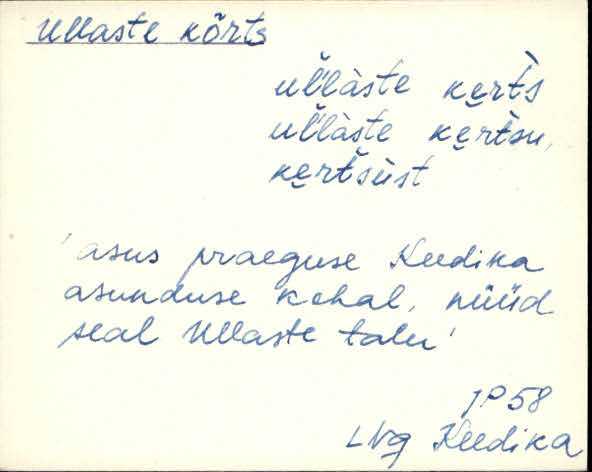 Ullaste kõrts
ul̆'làste ke̮rt̀s
ul̆'làste ke̮rt̆su,
ke̮rt̆sust
'asus praeguse Keedika
asunduse kohal, nüüd
seal Ullaste talu'
JP 58
LNg Keedika